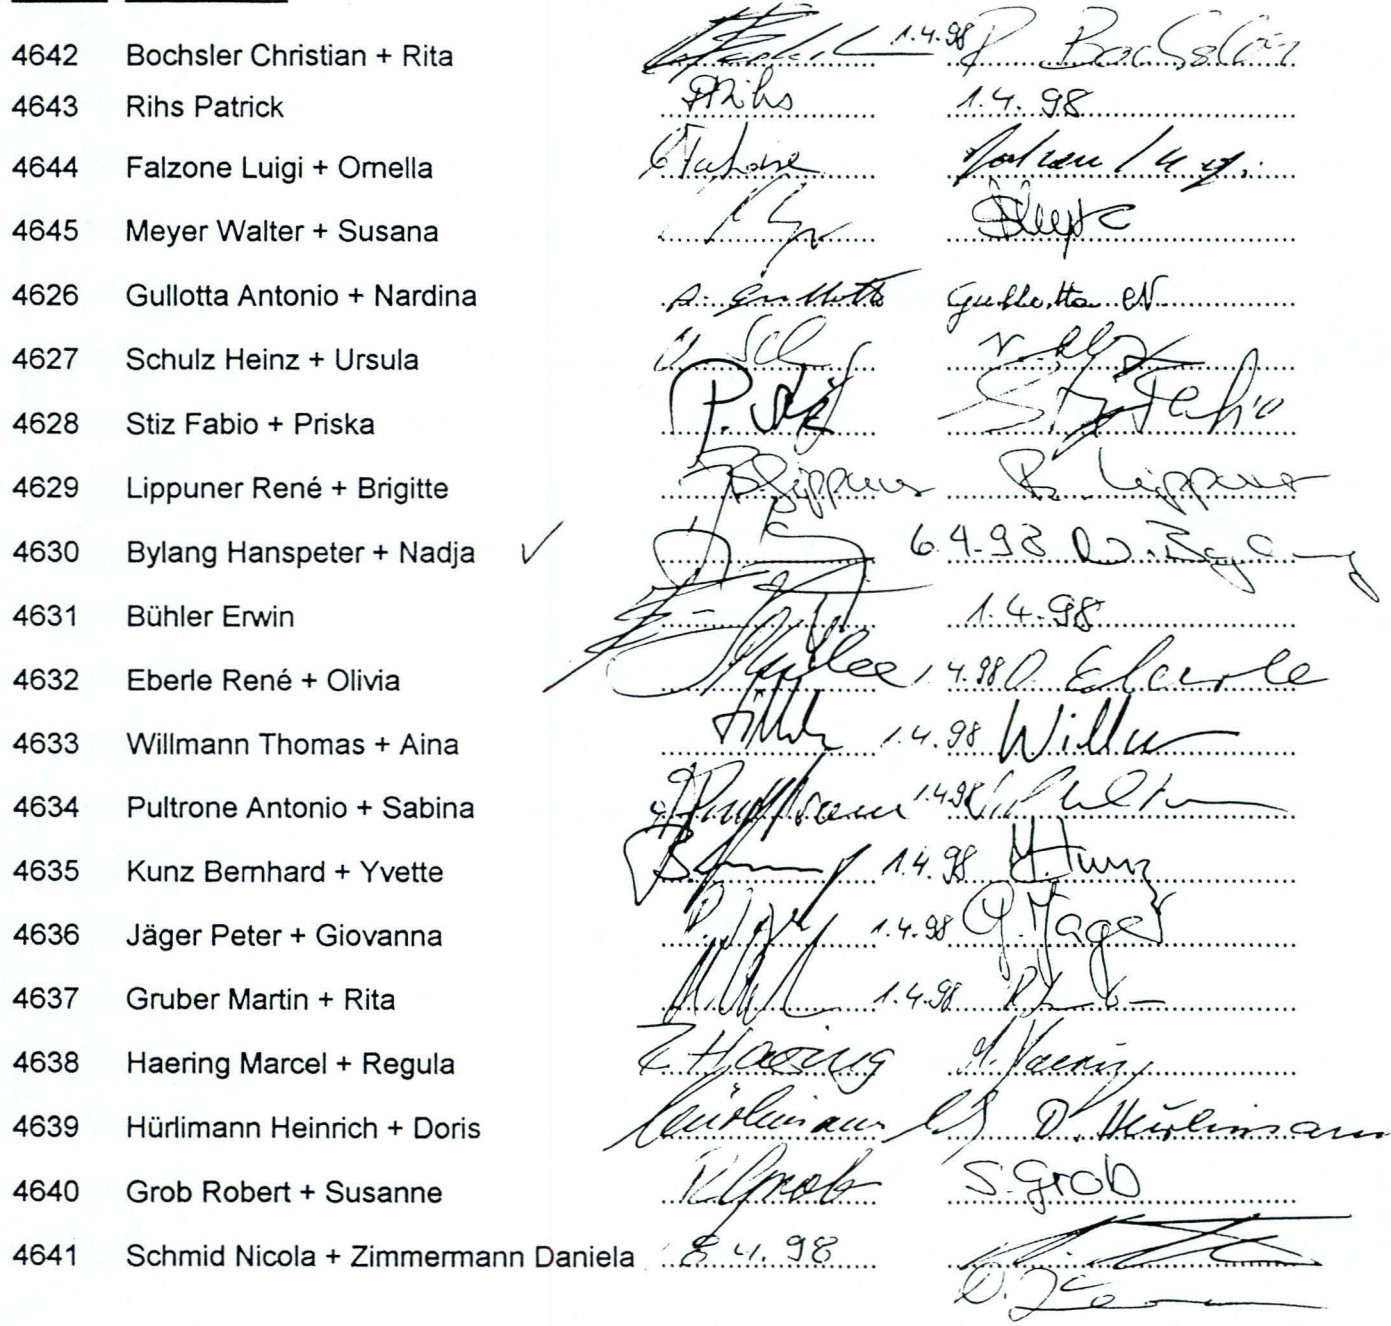 4642 Bochsler Christian + Rita 1.4.98 R Bochsler
4643 Rihs Patrick PRihs 1.4.98
4644 Falzone Luigi + Ornella
4645 Meyer Walter + Susana
4626 Gullotta Antonio + Nardina A. Gullotta Gullotta N.
4627 Schulz Heinz + Ursula
4628 Stiz Fabio + Priska P. Stiz Stiz Fabio
4629 Lippuner René + Brigitte B Lippuner R. Lippuner
4630 Bylang Hanspeter + Nadja ✓ 6.4.98 N. Bylang
4631 Bühler Erwin 1.4.98
4632 Eberle René + Olivia 1.4.98 O. Eberle
4633 Willmann Thomas + Aina 1.4.98
4634 Pultrone Antonio + Sabina 1.4.98
4635 Kunz Bernhard + Yvette 1.4.98 Y. Kunz
4636 Jäger Peter + Giovanna 1.4.98 G. Jäger
4637 Gruber Martin + Rita 1.4.98
4638 Haering Marcel + Regula R. Haering M. Haering
4639 Hürlimann Heinrich + Doris Hürlimann D. Hürlimann
4640 Grob Robert + Susanne R Grob S. Grob
4641 Schmid Nicola + Zimmermann Daniela 8.4.98